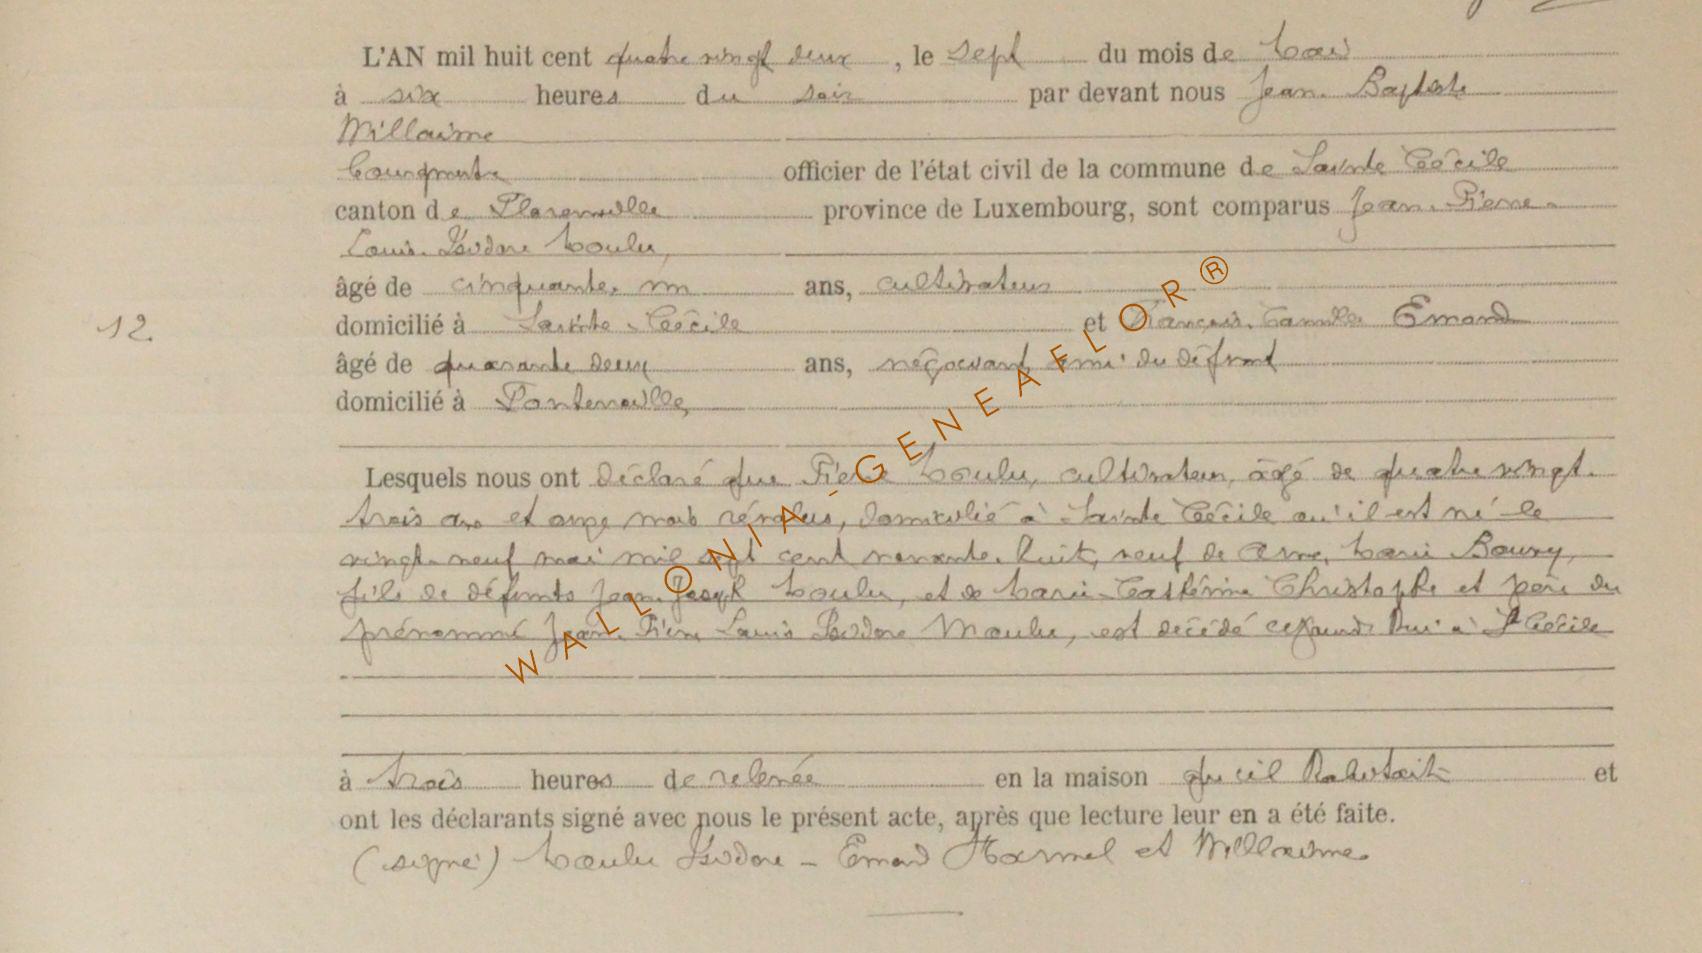 L'AN mil huit cent quatre vingt deux, le sept du mois de Mai
à six heures du soir par devant nous Jean Baptiste
Willaime
Bourgmestre officier de l'état civil de la commune de Sainte Cécile
canton de Florenville province de Luxembourg, sont comparus Jean-Pierre-
Louis-Isidore Moulu,
âgé de cinquante-un ans, cultivateur
domicilié à Sainte-Cécile et François-Camille Emond
12.
âgé de quarante deux ans, négociant ami du défunt
domicilié à Fontenoille,
Lesquels nous ont déclaré que Pierre Moulu, cultivateur, âgé de quatre vingt-
trois ans et onze mois révolus, domicilié à Sainte Cécile où il est né le
vingt-neuf mai mil sept cent nonante-huit, veuf de Anne, Marie Boury,
fils de défunts Jean-Joseph Moulu, et de Marie-Cathérine Christophe et père du
prénommé Jean-Pierre Louis Isidore Moulu, est décédé cejourd'hui à Ste Cécile
à trois heures de relevée en la maison qu'il habitait et
ont les déclarants signé avec nous le présent acte, après que lecture leur en a été faite.
(signé) Moulu Isidore - Emond Harmel et Willaime
WALLONIA-GENEAFLOR®